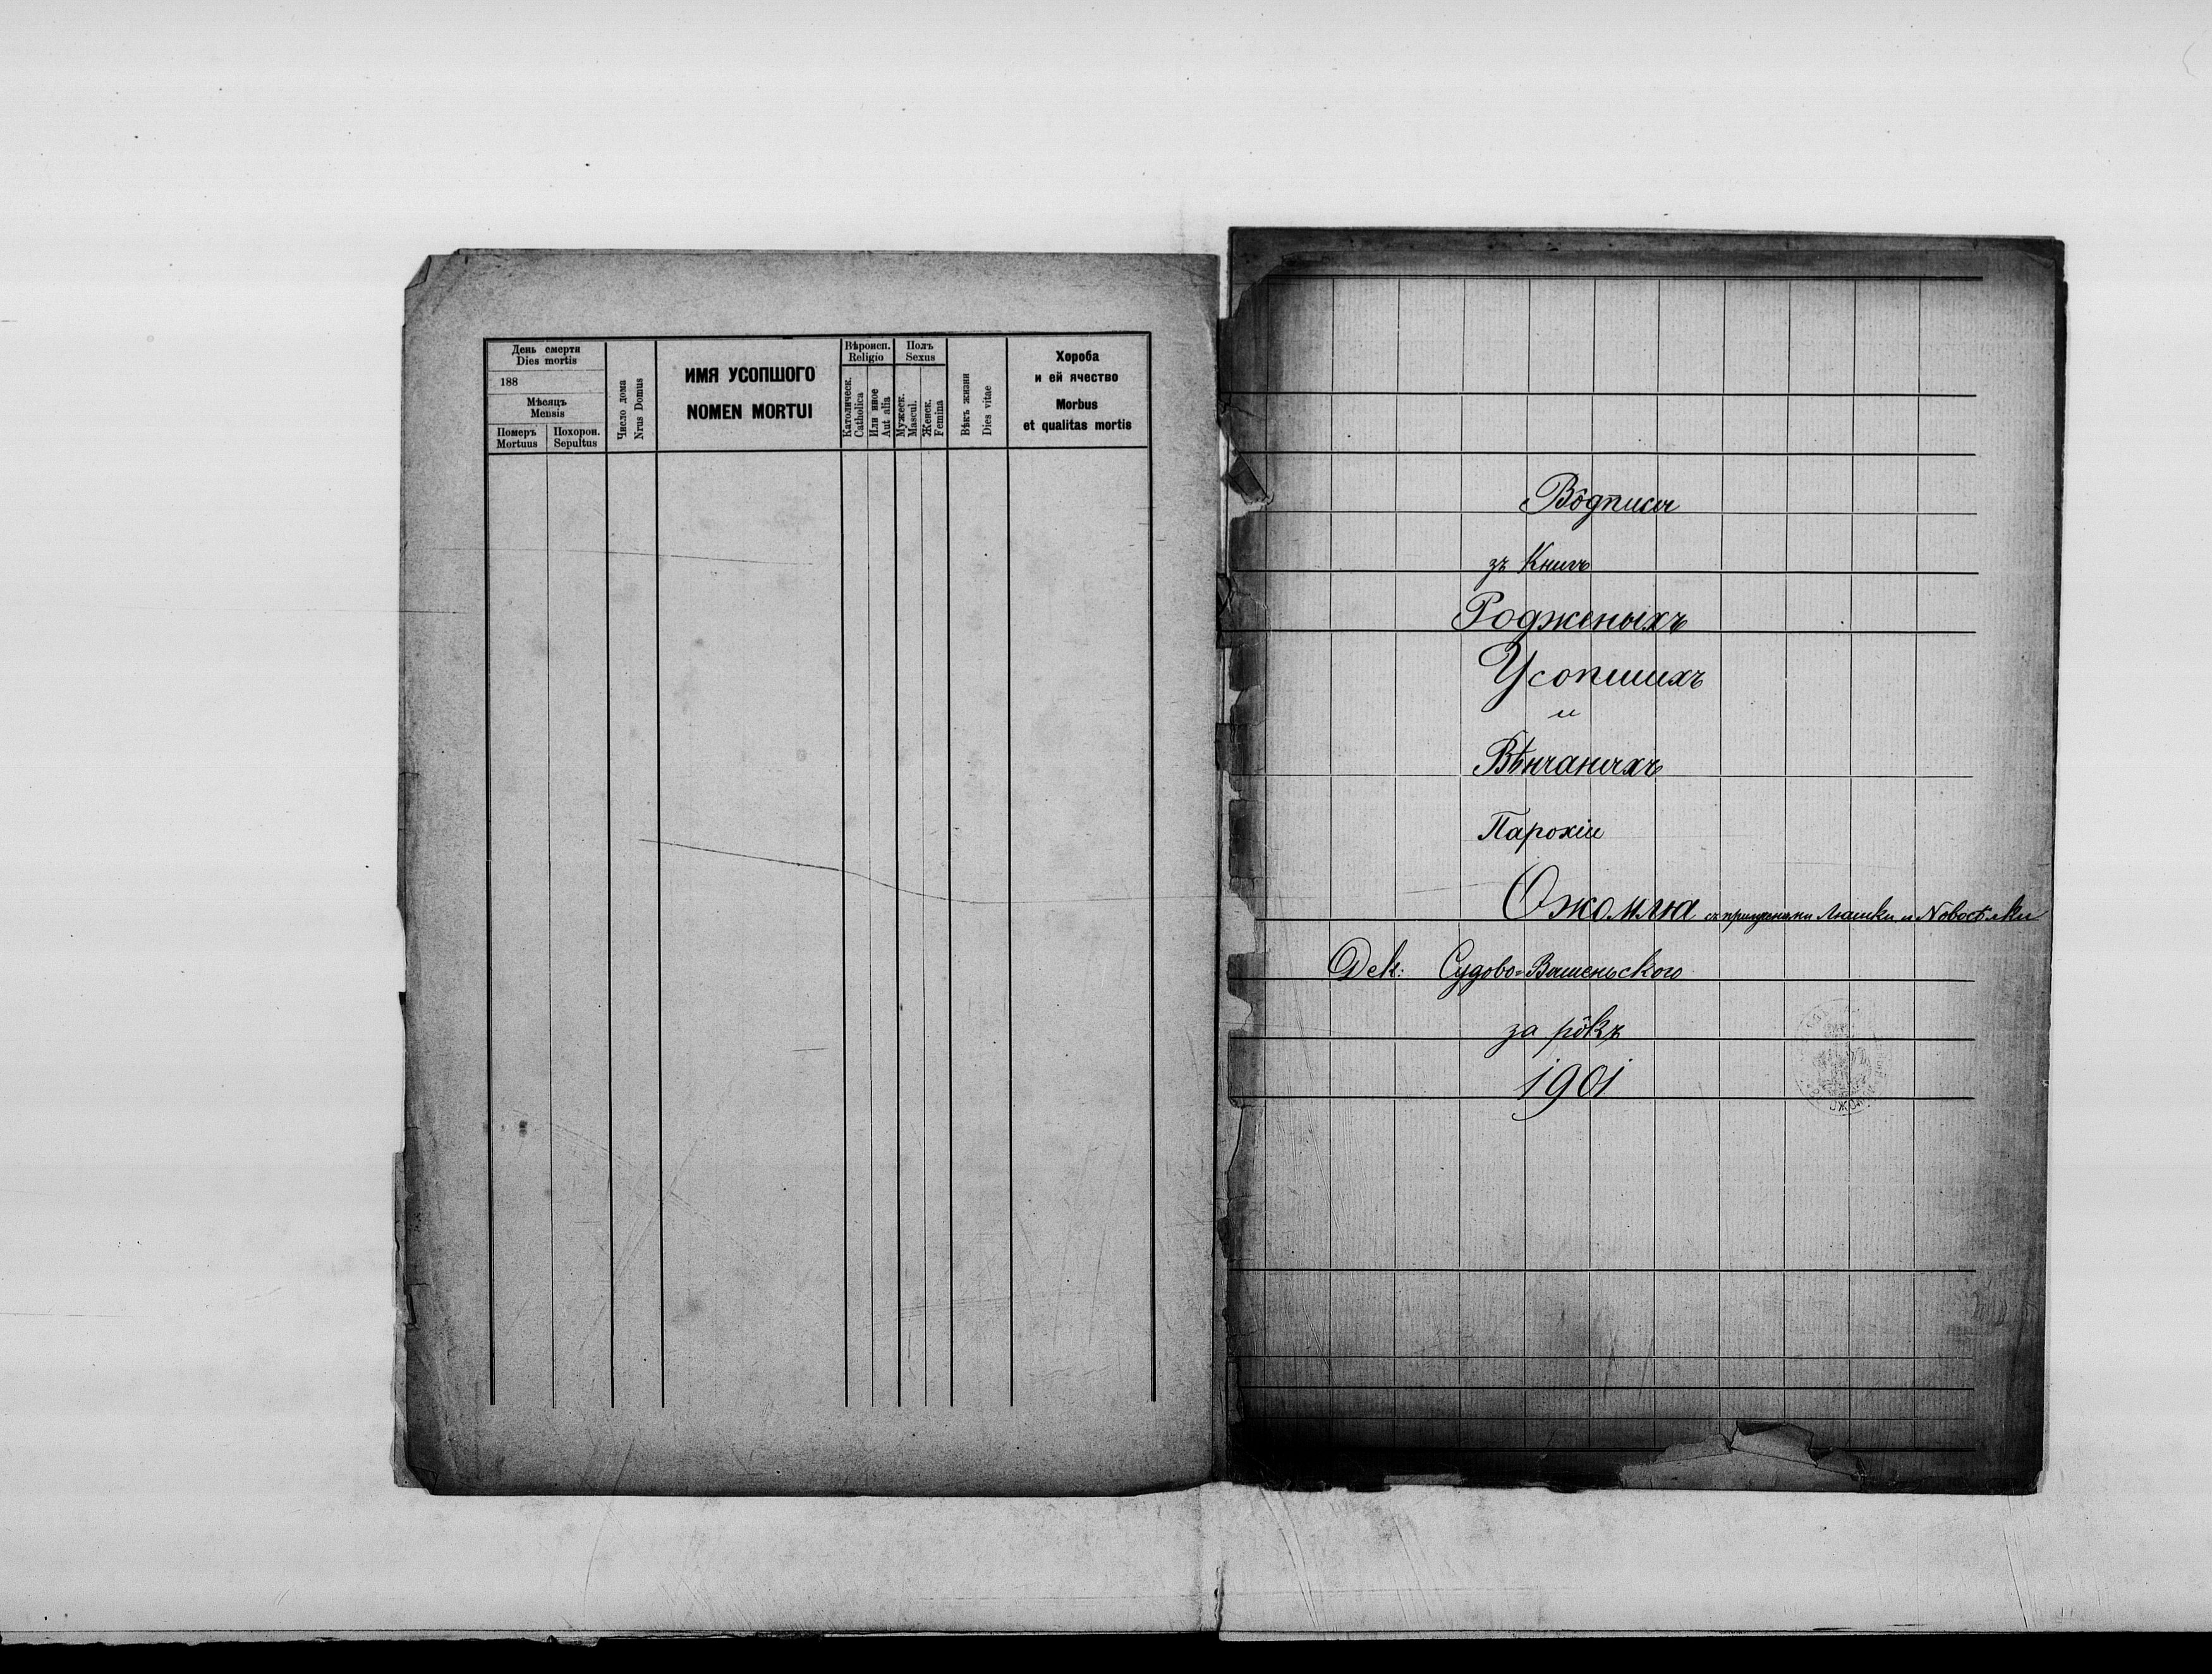 День смерти
Dies mortis
188
Мѣсяцъ
Mensis
Померъ
Mortuus
Похорон.
Sepultus
Число дома
Nrus Domus
ИМЯ УСОПШОГО
NOMEN MORTUI
Вѣроисп.
Religio
Католическ.
Catholica
Или иное
Aut alia
Полъ
Sexus
Мужеск.
Mascul.
Женск.
Femina
Вѣкъ жизни
Dies vitae
Хороба
и ей ячество
Morbus
et qualitas mortis
Вôдписи
зъ Книгъ
Родженыхъ
Усопшихъ
и
Вѣнчаныхъ
Парохіи
Ожомля съ Люшки и Новосѣлки
Дек: Судово-Вишеньского
за рôкъ
1901